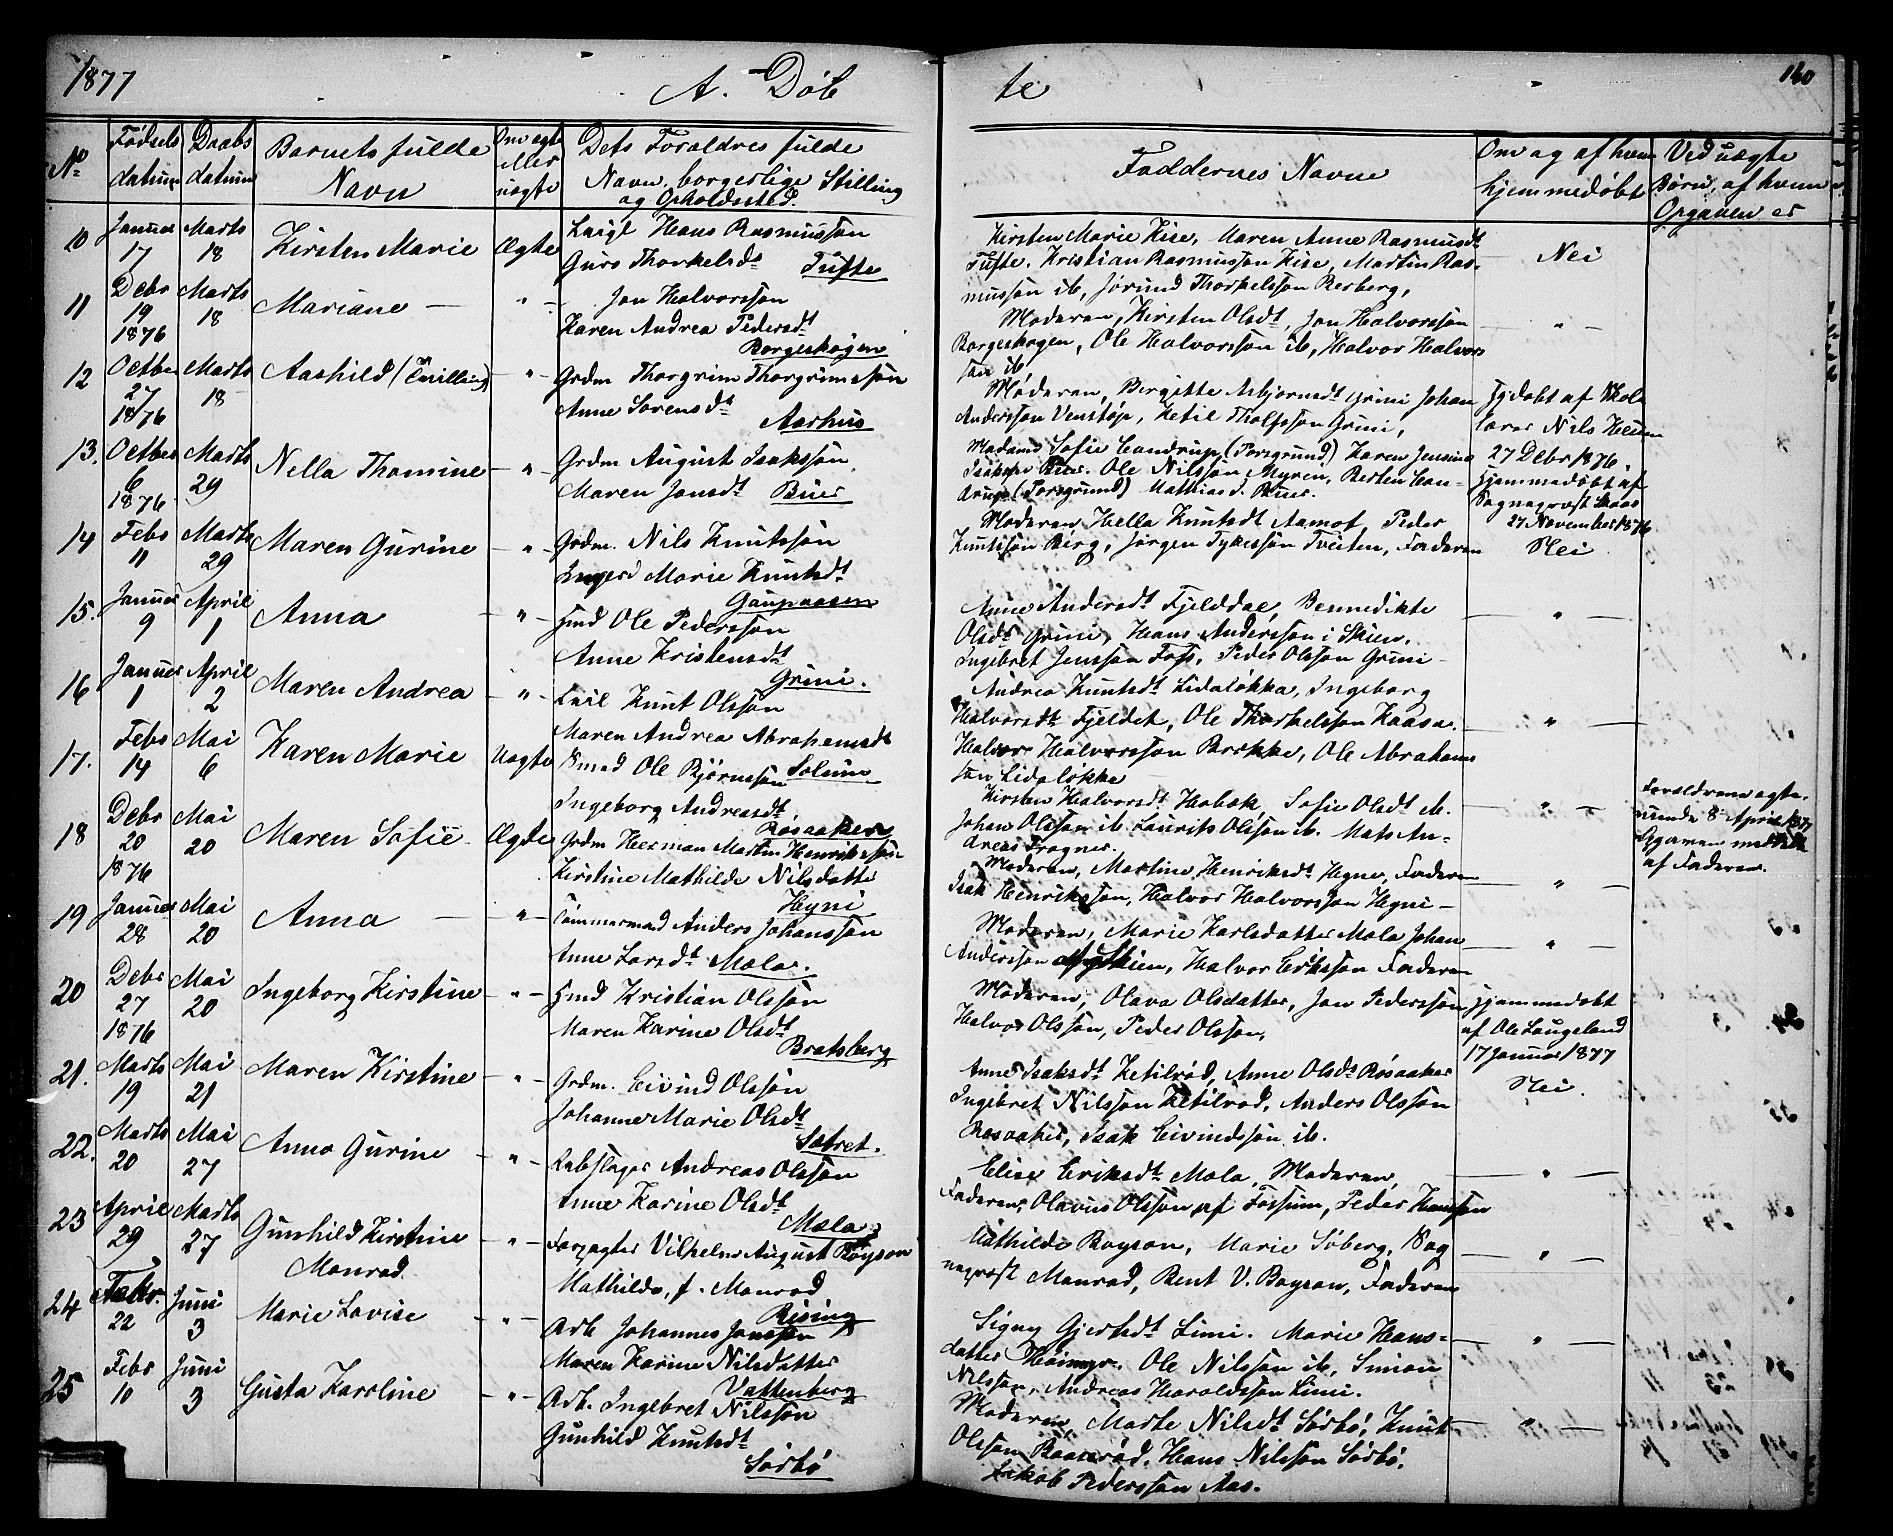 1877
A. Døb
te
140
No
Fødsels datum
Daabs datum
Barnets fulde Navn
Om egte eller uægte
Dets Forældres fulde Navn, borgerlige Stilling og Opholdssted.
Faddernes Navne
Om og af hvem hjemmedøbt
Ved uægte Børn, af hvem Opgaven er
10
Januar 17
Marts 18
Kirsten Marie
Ægte
Hans Rasmussøn
Guro Thorkelsdt Tufte
Kirsten Marie Kise, Maren Anne Rasmusdt
Tufte, Kristian Rasmussøn Kise, Martin Ras-
mussøn ib, Jørund Thorkelssøn Rerberg,
Nei
11
Debr 19 1876
Marts 18
Mariane
"
Jon Halvorssøn
Karen Andrea Pedersdt
Borgeskogen
Moderen, Kirsten Olsdt, Jon Halvorssøn
Borgeskogen, Ole Halvorssøn ib, Halvor Halvors
søn ib
"
12
Octbr 27 1876
Marts 18
Aashild (Tvilling)
"
Grdm Thorgrim Thorgrimssøn
Anne Sørensdt
Aarhus
Moderen, Birgitte Asbjørnsdt Grini Johan
Anderssøn Venstøp, Ketil Tholfssøn Grini,
Hjdøbt af Skole
lærer Nils
27 Debr 1876.
13.
Octber 6 1876
Marts 29
Nella Thomine
"
Grdm August Isakssøn
Maren Jensdt Bues
Madame Sofie (Porsgrund) Karen Jensine
Ole Nilssøn Myren,
(Porsgrund) Mathias
Hjemmedøbt af
Sognepræst
27 November 1876
14
Febr 11
Marts 29
Maren Gurine
"
Grdm. Nils Knutssøn
Marie Knutsdt
Gaupaasen
Moderen Hella Knutsdt Aamot, Peder
Knutssøn Berg, Jørgen Tveiten, Faderen
Nei
15.
Januar 9
April 1
Anna
"
Hmd Ole Pederssøn
Anne Kristensdt
Grini.
Anne Andersdt Fjelddal, Bennedikte
Olsdt Grini, Hans Anderssøn i Skien,
Ingebret Jenssøn Foss, Peder Olssøn Grini
"
16
Januar 1
April 2
Maren Andrea
"
Knut Olssøn
Maren Andrea Abrahamsdt
Solum
Andrea Knutsdt Lidaløkka, Ingeborg
Halvorsdt Fjeldet, Ole Thorkelssøn Kaasa.
Halvor Halvorssøn Brekke, Ole Abrahams
søn Lidaløkka
"
17.
Febr 14
Mai 6
Karen Marie
Uægte
Smed Ole Bjørnssøn
Ingeborg Andreasdt
Røsaaker
Kirsten Halvorsdt Høbæk, Sofie Olsdt ib.
Johan Olssøn ib Laurits Olssøn ib. Mats An-
dreas Frogner.
"
Forældrene egte-
viede 8 April 1877
Opgaven meddelt
af Faderen.
18
Debr 20 1876
Mai 20
Maren Sofie
Ægte
Grdm Herman Martin Henrikssøn
Kirstine Mathilde Nilsdatter
Hyni
Moderen, Martine Henriksdt Hyne, Faderen
Isak Henrikssøn, Halvor Halvorssøn Hyni
"
19
Januar 28
Mai 20
Anna
"
Tømmermand Anders Johanssøn
Anne Larsdt Mæla.
Moderen, Marie Karlsdatter Mæla Johan
Anderssøn Skien, Halvor Erikssøn Faderen
"
20
Debr 27 1876
Mai 20
Ingeborg Kirstine
"
Hmd Kristian Olssøn
Maren Karine Olsdt
Bratsberg
Moderen, Olava Olsdatter, Jon Pederssøn
Halvor Olssøn, Peder Olssøn,
Hjemmedøbt
af Ole Langeland
17 Januar 1877
21.
Marts 19
Mai 21
Maren Kirstine
"
Grdm. Eivind Olssøn
Johanne Marie Olsdt
Sætret.
Anne Isaksdt Ketilrød, Anne Olsdt Røsaaker
Ingebret Nilssøn Ketilrød, Anders Olssøn
Røsaaker, Isak Eivindssøn ib.
Nei.
22.
Marts 20
Mai 27
Anna Gurine
"
Rebslager Andreas Olssøn
Anne Karine Olsdt
Mæla
Elise Eriksdt Mæla, Moderen,
Faderen, Olavus Olssøn pf Fossum, Peder Hanssøn
"
23
April 29
Marts 27
Gunhild Kirstine
Monrad
"
Forpagter Vilhelm August Bøyson
Mathilde, f. Monrad
Rising
Mathilde Boyson, Marie Søberg, Sog
nepræst Monrad, Bent V. Boyson, Faderen
"
24
Febr. 22
Juni 3
Marie Lovise
"
Arb Johannes Jenssøn
Maren Karine Nilsdatter
Vattenberg
Signy Gjertsdt Limi. Marie Hans-
datter Høimyr. Ole Nilssøn ib, Simon
Nilssøn, Andreas Haraldssøn Limi.
"
25
Febr 10
Juni 3
Gusta Karoline
"
Arb. Ingebret Nilssøn
Gunhild Knutsdt
Sørbø
Moderen, Marte Nilsdt Sørbø, Knut
Olssøn Baaserød, Hans Nilssøn Sørbø,
Jakob Pederssøn Aas.
"